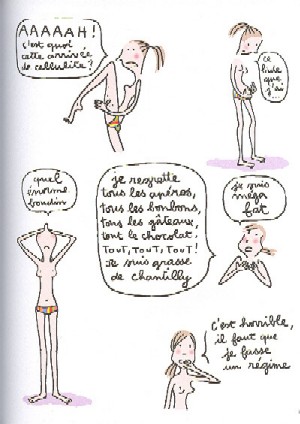 AAAAAH!
c'est quoi
cette arrivée
de cellulite?
ce
bide
que
j'ai...
quel
énorme
boudin
je regrette
tous les apéros,
tous les bonbons,
tous les gâteaux,
tout le chocolat.
TOUT, TOUT, TOUT!
Je suis grasse
de chantilly
je suis
méga
fat
c'est horrible,
il faut que
je fasse
un régime